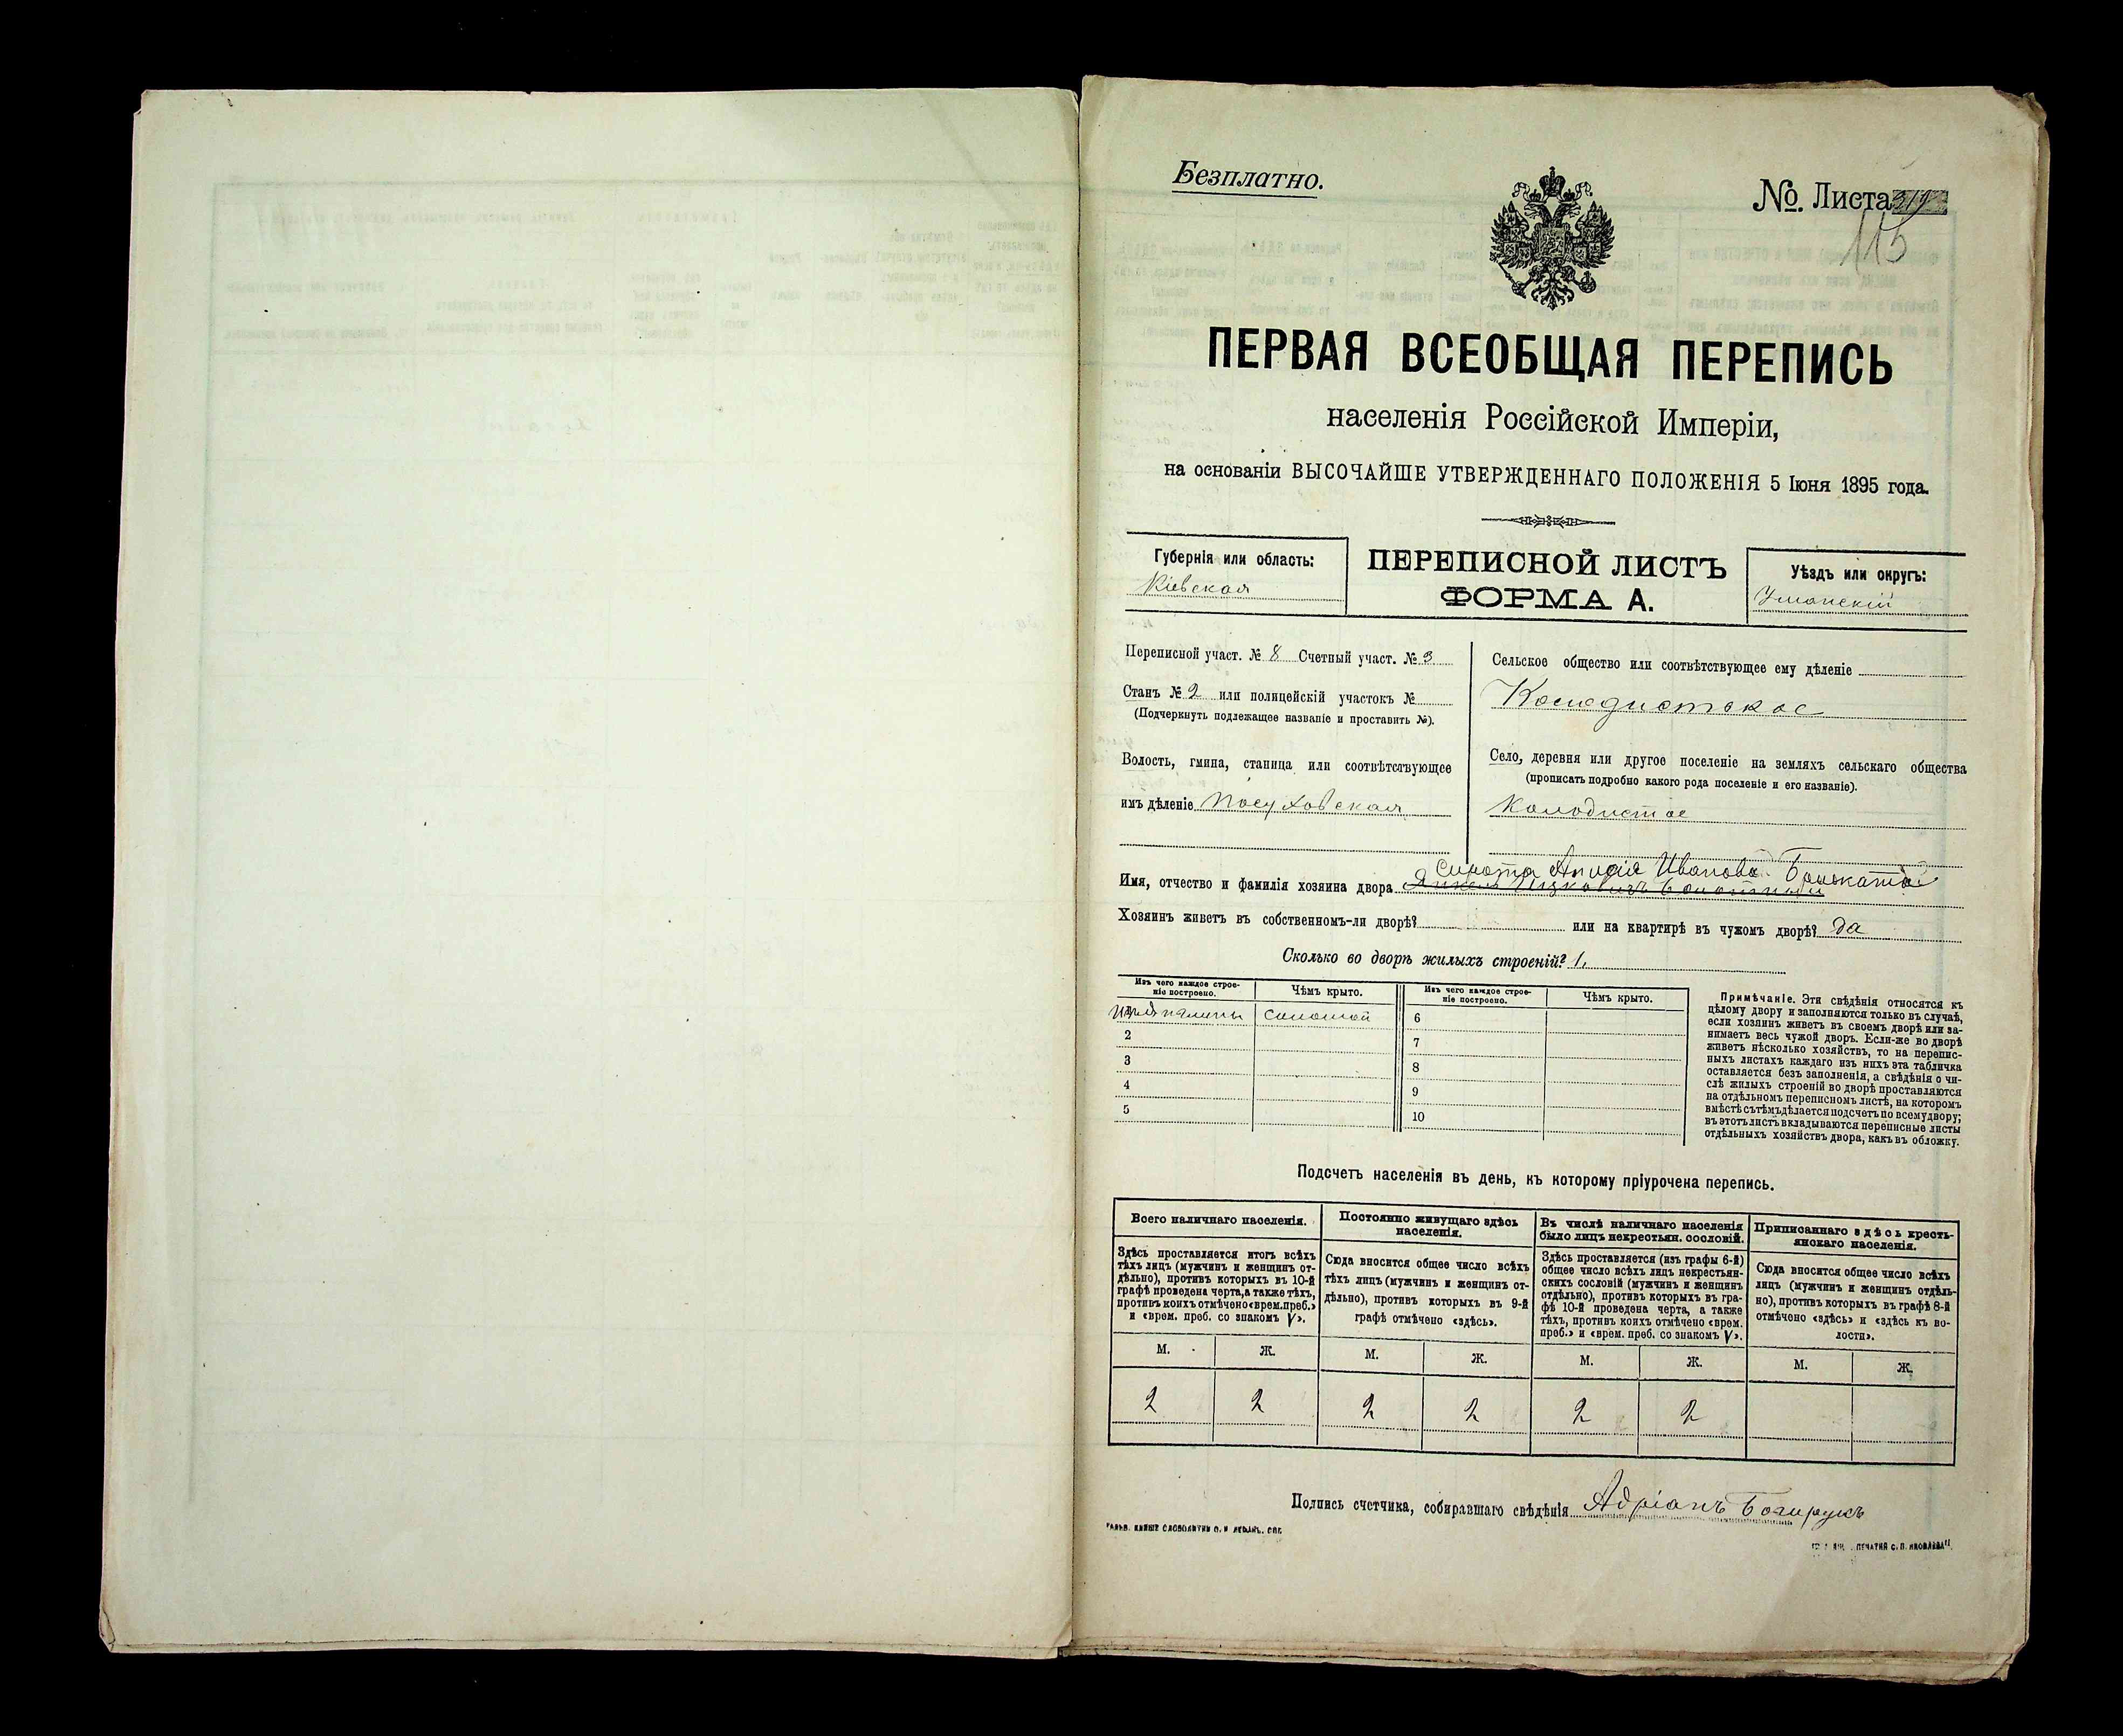 Безплатно.
№. Листа 319
115
ПЕРВАЯ ВСЕОБЩАЯ ПЕРЕПИСЬ
населенія Россійской Имперіи,
на основаніи ВЫСОЧАЙШЕ УТВЕРЖДЕННАГО ПОЛОЖЕНІЯ 5 Іюня 1895 года.
Губернія или область:
Кіевская
ПЕРЕПИСНОЙ ЛИСТЪ
ФОРМА А.
Уѣздъ или округъ:
Уманскій
Переписной участ. № 8 Счетный участ. № 3
Станъ № 2 или полицейскій участокъ №
(Подчеркнуть подлежащее названіе и проставить №).
Волость, гмина, станица или соотвѣтствующее
имъ дѣленіе Посуховская
Сельское общество или соотвѣтствующее ему дѣленіе
Колодистское
Село, деревня или другое поселеніе на земляхъ сельскаго общества
(прописать подробно какого рода поселеніе и его названіе).
Колодистое
Сирота Иванова
Имя, отчество и фамилія хозяина двора
Хозяинъ живетъ въ собственномъ-ли дворѣ? или на квартирѣ въ чужомъ дворѣ? да
Сколько во дворѣ жилыхъ строеній? 1,
Изъ чего каждое строе-
ніе построено.
Чѣмъ крыто.
Изъ чего каждое строе-
ніе построено.
Чѣмъ крыто.
соломой
6
2
7
3
8
4
9
5
10
Примѣчаніе. Эти свѣдѣнія относятся къ
цѣлому двору и заполняются только въ случаѣ,
если хозяинъ живетъ въ своемъ дворѣ или за-
нимаетъ весь чужой дворъ. Если-же во дворѣ
живетъ нѣсколько хозяйствъ, то на перепис-
ныхъ листахъ каждаго изъ нихъ эта табличка
оставляется безъ заполненія, а свѣдѣнія о чи-
слѣ жилыхъ строеній во дворѣ проставляются
на отдѣльномъ переписномъ листѣ, на которомъ
вмѣстѣ съ тѣмъ дѣлается подсчетъ по всему двору;
въ этотъ листъ вкладываются переписные листы
отдѣльныхъ хозяйствъ двора, какъ въ обложку.
Подсчетъ населенія въ день, къ которому пріурочена перепись.
Всего наличнаго населенія.
Здѣсь проставляется итогъ всѣхъ
тѣхъ лицъ (мужчинъ и женщинъ от-
дѣльно), противъ которыхъ въ 10-й
графѣ проведена черта, а также тѣхъ,
противъ коихъ отмѣчено «врем. преб.»
и «врем. преб. со знакомъ V».
Постоянно живущаго здѣсь
населенія.
Сюда вносится общее число всѣхъ
тѣхъ лицъ (мужчинъ и женщинъ от-
дѣльно), противъ которыхъ въ 9-й
графѣ отмѣчено «здѣсь».
Въ числѣ наличнаго населенія
было лицъ некрестьян. сословій.
Здѣсь проставляется (изъ графы 6-й)
общее число всѣхъ лицъ некрестьян-
скихъ сословій (мужчинъ и женщинъ
отдѣльно), противъ которыхъ въ гра-
фѣ 10-й проведена черта, а также
тѣхъ, противъ коихъ отмѣчено «врем.
преб.» и «врем. преб. со знакомъ V».
Приписаннаго здѣсь кресть-
янскаго населенія.
Сюда вносится общее число всѣхъ
лицъ (мужчинъ и женщинъ отдѣль-
но), противъ которыхъ въ графѣ 8-й
отмѣчено «здѣсь» и «здѣсь къ во-
лости».
М. Ж. М. Ж. М. Ж. М. Ж.
2 2 2 2 2 2
Подпись счетчика, собиравшаго свѣдѣнія Адріанъ